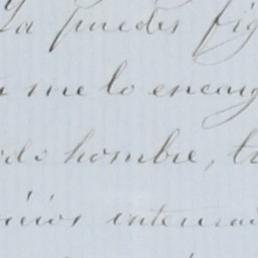 Ya puedes fig
me lo encarg
odo hombre, tr
icios interesa